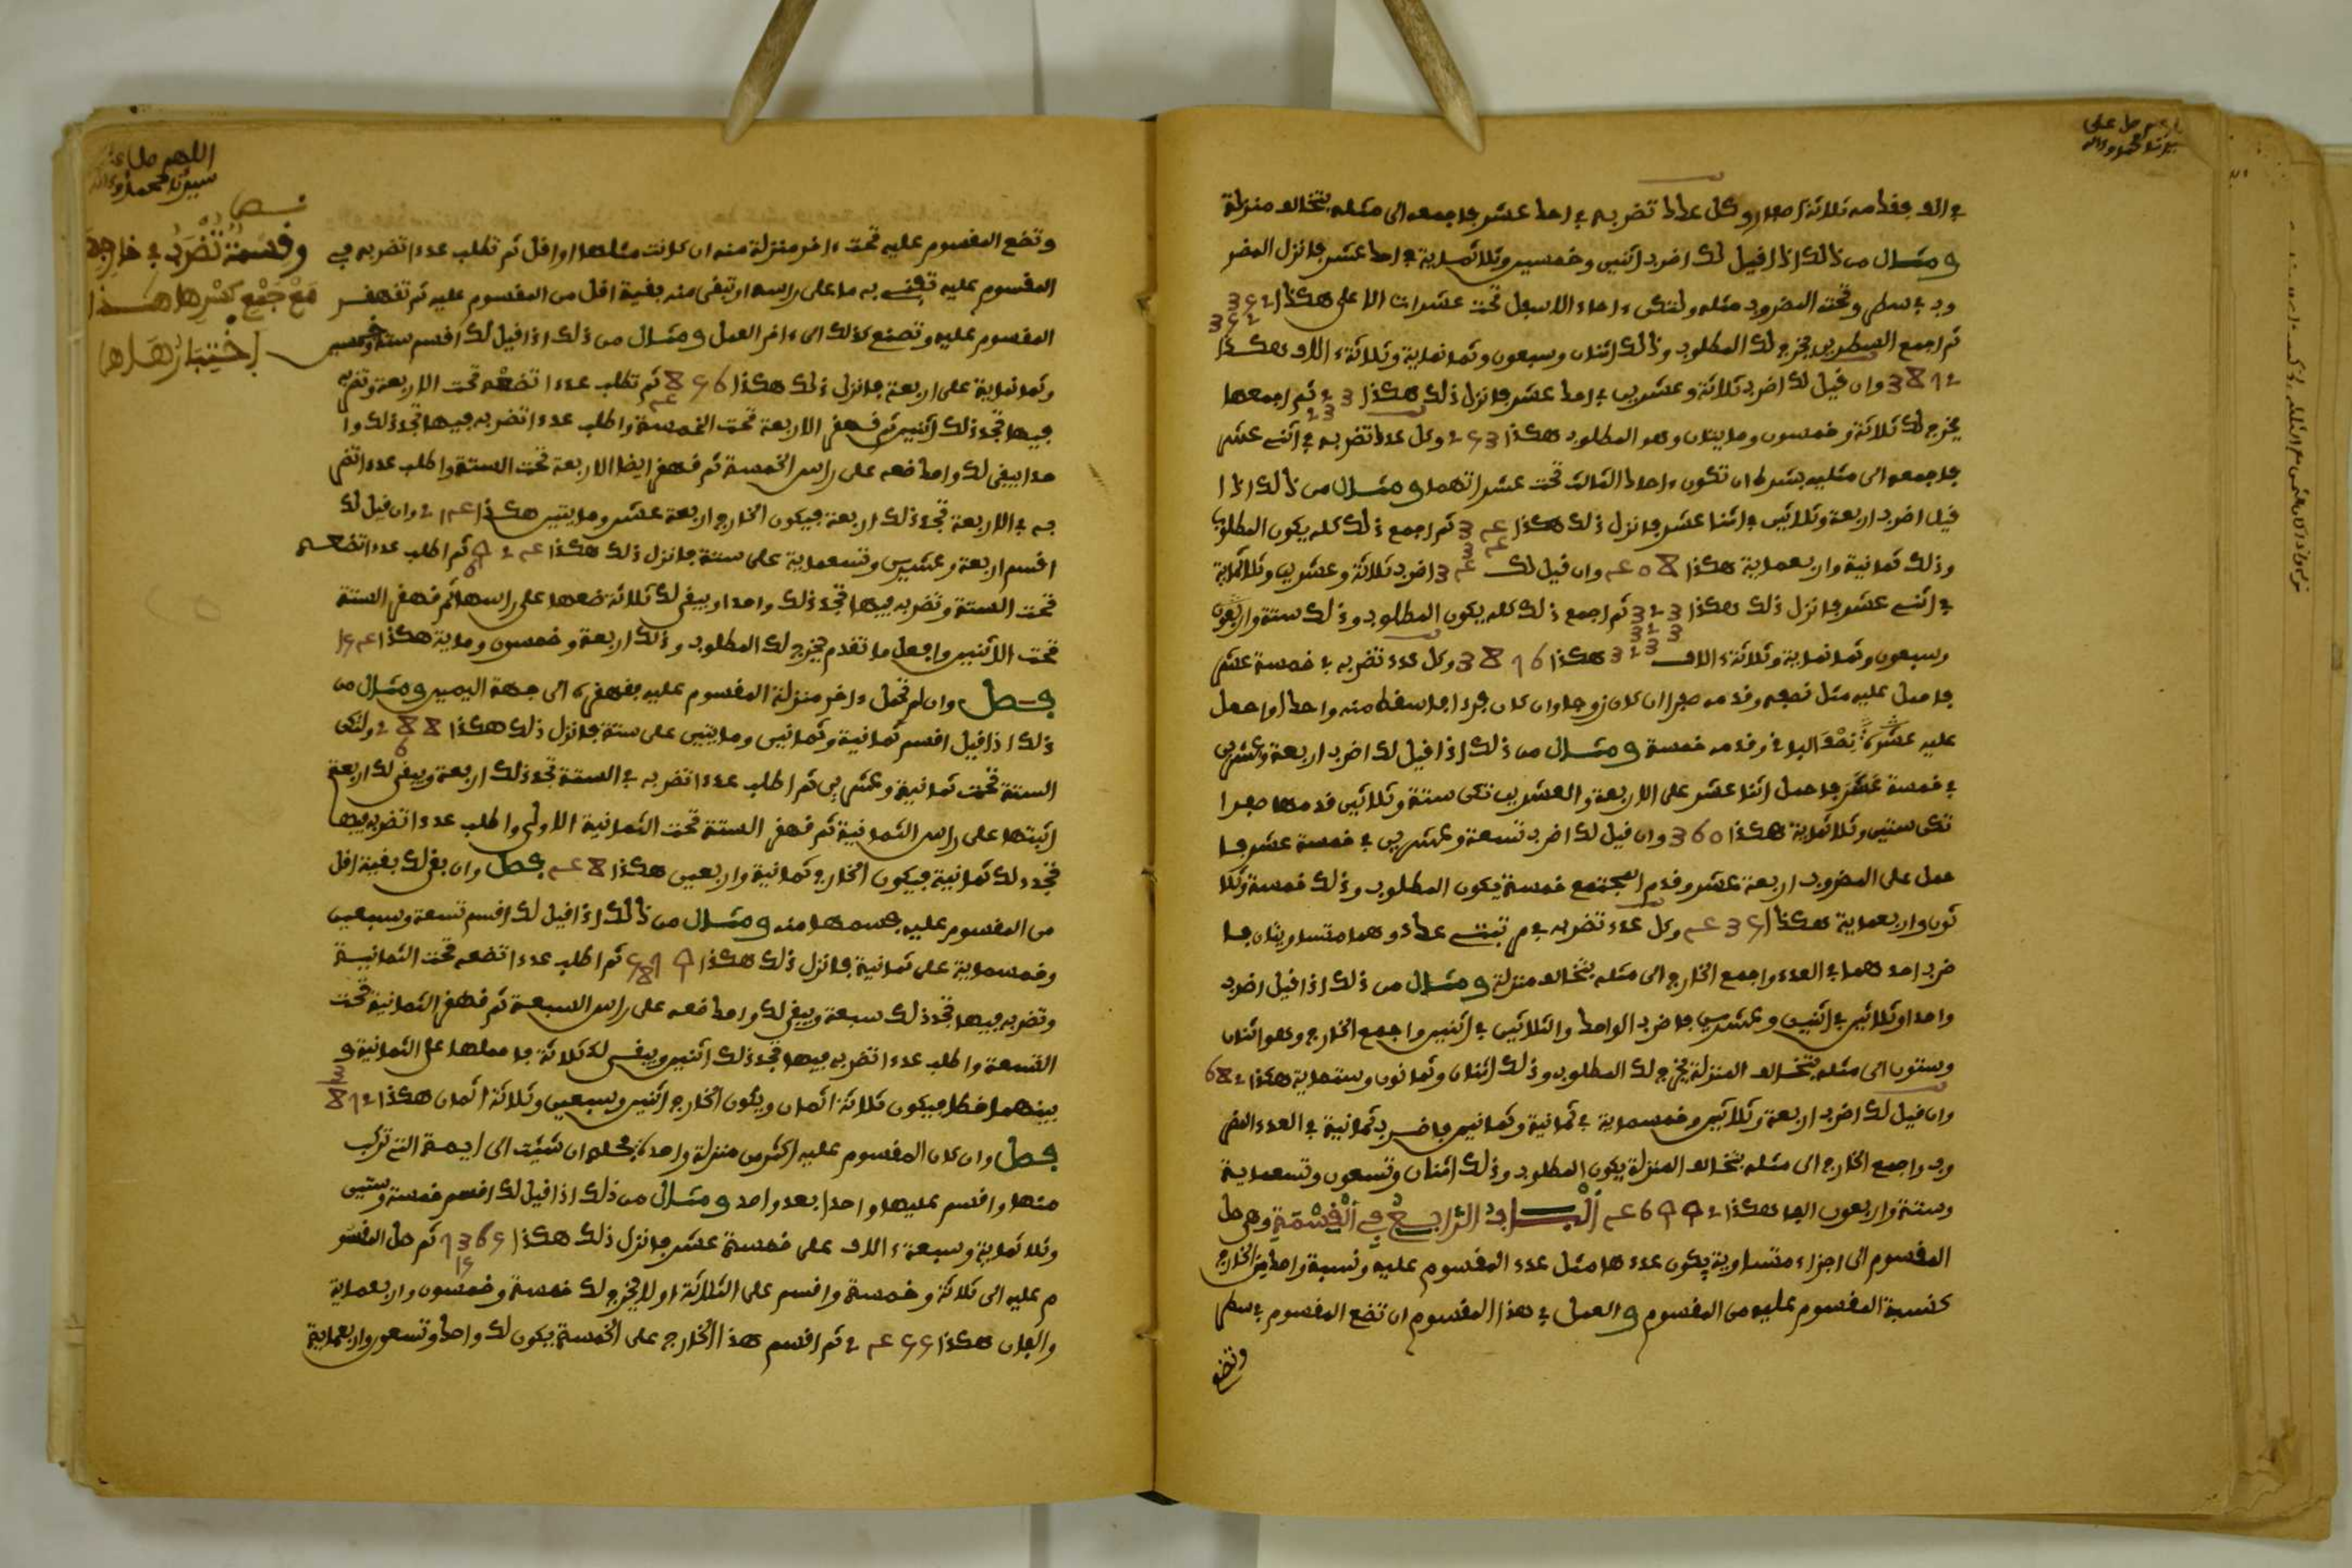 في الف فقدمه ثلاثة اصفار وكل عدد تضربه في احد عشر فاجمعه الى مثله بتخالف منزلة
ومثال من ذالك اذا قيل لك اضرب اثنين وخمسين وثلاثماية في احد عشر فانزل المضر
وب في سطر وتحت المضروب مثله ولتكن ءاحاد الاسفل تحت عشرات الاعلى هكذا 352
352
ثم اجمع السطرين يخرج لك المطلوب وذالك اثنان وسبعون وثمانماية وثلاثة ءالاف هكذا
3872 وان قيل لك اضرب ثلاثة وعشرين في احد عشر فانزل ذلك هكذا 23 ثم اجمعها
23
يخرج لك ثلاثة وخمسون ومايتان وهو المطلوب هكذا 253 وكل عدد تضربه في اثنى عشر
فاجمعه الى مثليه بشرط ان تكون ءاحاد الثالث تحت عشراتهما ومثال من ذالك اذا
قيل اضرب اربعة وثلاثين في اثنا عشر فانزل ذلك هكذا 34 ثم اجمع ذلك كله يكون المطلوب
34
وذلك ثمانية واربعماية هكذا 408 وان قيل لك 34 اضرب ثلاثة وعشرين وثلاثماية
في اثنى عشر فانزل ذلك هكذا 323 ثم اجمع ذلك كله يكون المطلوب وذلك ستة واربعون
323
وسبعون وثمانماية وثلاثة ءالاف 323 هكذا 3876 وكل عدد تضربه في خمسة عشر
فاحمل عليه مثل نصفه وقدمه صفرا ان كان زوجا وان كان فردا فاسقط منه واحدا واحمل
عليه عشرة نصف الباقي وقدمه خمسة ومثال من ذلك اذا قيل لك اضرب اربعة وعشرين
في خمسة عشر فاحمل اثنا عشر على الاربعة والعشرين تكن ستة وثلاثين قدمها صفرا
تكن ستين وثلاثماية هكذا 360 وان قيل لك اضرب تسعة وعشرين في خمسة عشر فا
حمل على المضروب اربعة عشر وقدم المجتمع خمسة يكون المطلوب وذلك خمسة وثلا
ثون واربعماية هكذا 435 وكل عدد تضربه في م تبتنى عدد وهما متساويتان فا
ضرب احدهما في العدد واجمع الخارج الى مثله بتخالف منزلة ومثال من ذلك اذا قيل اضرب
واحدا وثلاثين في اثنين وعشرين فاضرب الواحد والثلاثين في اثنين واجمع الخارج وهو اثنان
وستون الى مثله بتخالف المنزلة يخرج لك المطلوب وذلك اثنان وثمانون وستماية هكذا 682
وان قيل لك اضرب اربعة وثلاثين وخمسماية في ثمانية وثمانين فاضرب ثمانية في العدد المضر
وب واجمع الخارج الى مثله بتخالف المنزلة يكون المطلوب وذلك اثنان وتسعون وتسعماية
وستة واربعون الفا هكذا 46992 الباب الرابع في القسمة وهي حل
المقسوم الى اجزاء متساوية يكون عددها مثل عدد المقسوم عليه ونسبة واحد من الخارج
كنسبة المقسوم عليه من المقسوم والعمل في هذا المقسوم ان تضع المقسوم في سطر
وتضع
اللهم صل على
سيدنا محمد وءاله
وتضع المقسوم عليه تحت ءاخر منزلة منه ان كانت مثلها او اقل ثم تطلب عددا تضربه في
المقسوم عليه تفنى به ما على راسه او تبقى منه بقية اقل من المقسوم عليه ثم تقهقر
المقسوم عليه وتصنع كذلك الى ءاخر العمل ومثال من ذلك اذا قيل لك اقسم ستة وخمسين
وثمانماية على اربعة فانزل ذلك هكذا 856 ثم تطلب عددا تضعه تحت الاربعة وتضربه
4
فيها تجد ذلك اثنين ثم قهقر الاربعة تحت الخمسة واطلب عددا تضربه فيها تجد ذلك وا
حدا يبقى لك واحد ضعه على راس الخمسة ثم قهقر ايضا الاربعة تحت الستة واطلب عددا تضر
به في الاربعة تجد ذلك اربعة فيكون الخارج اربعة عشر ومايتين هكذا 214 وان قيل لك
اقسم اربعة وعشرين وتسعماية على ستة فانزل ذلك هكذا 924 ثم اطلب عددا تضعه
6
تحت الستة وتضربه فيها تجد ذلك واحدا ويبقى لك ثلاثة ضعها على راسها ثم قهقر الستة
تحت الاثنين وافعل ما تقدم يخرج لك المطلوب وذلك اربعة وخمسون وماية هكذا 154
فصل وان لم تحمل ءاخر منزلة المقسوم عليه فقهقره الى جهة اليمين ومثال من
ذلك اذا قيل اقسم ثمانية وثمانين ومايتين على ستة فانزل ذلك هكذا 288 ولتكن
6
الستة تحت ثمانية وعشرين ثم اطلب عددا تضربه في الستة تجد ذلك اربعة ويبقى لك اربعة
اثبتها على راس الثمانية ثم قهقر الستة تحت الثمانية الاولى واطلب عددا تضربه فيها
تجد ذلك ثمانية فيكون الخارج ثمانية واربعين هكذا 48 فصل وان بقى لك بقية اقل
من المقسوم عليه فسمها منه ومثال من ذالك اذا قيل لك اقسم تسعة وسبعين
وخمسماية على ثمانية فانزل ذلك هكذا 579 ثم اطلب عددا تضعه تحت الثمانية
8
وتضربه فيها تجد ذلك سبعة ويبقى لك واحد ضعه على راس السبعة ثم قهقر الثمانية تحت
التسعة واطلب عددا تضربه فيها تجد ذلك اثنين ويبقى لك ثلاثة فاحملها على الثمانية و
بينهما خط فيكون ثلاثة اثمان ويكون الخارج اثنين وسبعين وثلاثة اثمان هكذا 72 3/8
فصل وان كان المقسوم عليه اكثر من منزلة واحدة فحله ان شئت الى ايمة التي تركب
منها واقسم عليها واحدا بعد واحد ومثال من ذلك اذا قيل لك اقسم خمسة وستين
وثلاثماية وسبعة ءالاف على خمسة عشر فانزل ذلك هكذا 7365 ثم حل المقسو
15
م عليه الى ثلاثة وخمسة واقسم على الثلاثة اولا يخرج لك خمسة وخمسون واربعماية
والفان هكذا 2455 ثم اقسم هذا الخارج على الخمسة يكون لك واحد وتسعون واربعماية
اللهم صل على
سيدنا محمد وءاله
وقسمة تضرب في خارجة
مع جمع كسرها هذا
اختبارها